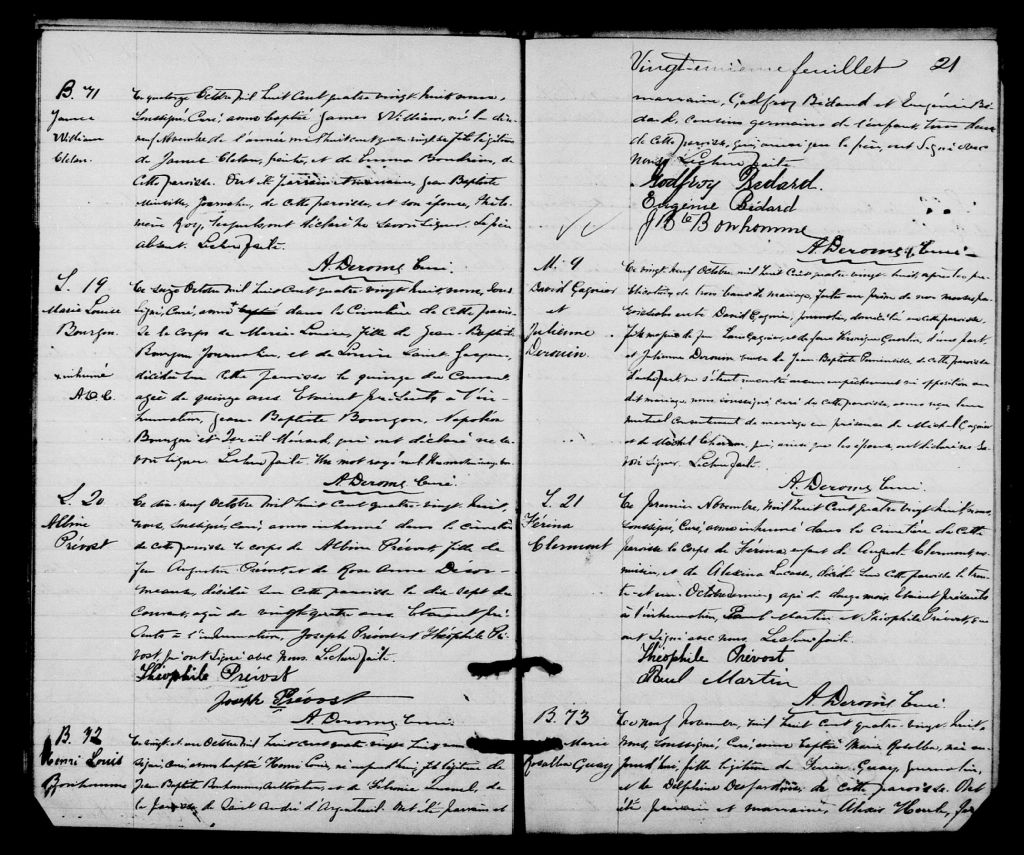 B. 71
James
William
Clelan.
Ce quatorze Octobre mil huit cent quatre vingt huit nous,
Soussigné, Curé, avons baptisé James William, né le dix
neuf
de James Clelan, et de Emma de
cette paroisse. Ont été Parrain et marraine, Jean Baptiste
de cette paroisse, et son épouse,
Roy, lesquels ont déclaré ne savoir signer. Le père
absent. Lecture faite.
A. Derome, Curé.
S. 19
Marie Louise
Bourgon.
x inhumé
A. D. C.
Ce seize Octobre mil huit cent quatre vingt huit nous, sous
signé, Curé, avons x dans le Cimetière de cette paroisse
le corps de Marie Louise, fille de Jean Baptiste
Bourgon Journalier, et de Louise Saint Jacques,
décédée en cette paroisse le quinze du courant
agée de quinze ans. Etaient présents à l'in-
humation, Jean Baptiste Bourgon, Napoléon
Bourgon et Israël Ménard, qui ont déclaré ne sa-
voir signer. Lecture faite. Un mot rayé nul
A. Derome, Curé.
S. 20
Albina
Prévost
Ce dix neuf Octobre mil huit cent quatre vingt huit,
nous, soussigné, Curé, avons inhumé dans le cimetière
de cette paroisse le corps de Albina Prévost, fille de
feu Augustin Prévost, et de Rose Anne Désor-
meaux, décédée en cette paroisse le dix sept du
courant, agée de vingt quatre ans. Etaient pré-
sents à l'inhumation, Joseph Prévost et Théophile Pré-
vost, qui ont signé avec nous. Lecture faite.
Théophile Prévost
Joseph Prévost
A. Derome, Curé.
B. 72
Henri Louis
Bonhomme
Ce vingt et un Octobre mil huit cent quatre vingt huit nous
signé, Curé, avons baptisé Henri Louis, né aujourd'hui, fils légitime de
Jean Baptiste Bonhomme, Cultivateur, et de
la paroisse de Saint André d'Argenteuil. Ont été parrain et
Vingt-unième feuillet 21
marraine, Godfroy Bédard et Eugénie Bé-
dard, cousins germains de l'enfant, tous deux
de cette paroisse, qui, ainsi que le père, ont signé avec
nous. Lecture faite
Godfroy Bédard.
Eugénie Bédard
J Bte Bonhomme
A. Derome, Curé
M. 9
David Gagnier
et
Julienne
Derouin.
Ce vingt neuf Octobre mil huit cent quatre vingt huit, après la pu-
blication de trois bans de mariage, faite au prône de nos messes pa-
roissiales entre David Gagnier, journalier, domicilié en cette paroisse,
fils majeur de feu Gagnier, et de feue Véronique d'une part,
et Julienne Derouin, veuve de Jean Baptiste de cette paroisse
d'autre part ne s'étant rencontré aucun empêchement ni opposition au
dit mariage, nous soussigné curé de cette paroisse, avons reçu leur
mutuel consentement de mariage en présence de Michel Gagnier
et de Michel qui, ainsi que les époux, ont déclaré ne sa-
voir signer. Lecture faite.
A. Derome, Curé.
S. 21
Férina
Clermont
Ce premier Novembre, mil huit cent quatre vingt huit nous,
soussigné, Curé, avons inhumé dans le Cimetière de cette
paroisse le corps de Férina, enfant de August Clermont, me-
nuisier, et de Alexina Lacasse, décédée en cette paroisse le tren-
te et un Octobre agée de douze mois. Etaient présents
à l'inhumation, Paul Martin et Théophile Prévost, qui
ont signé avec nous. Lecture faite.
Théophile Prévost
Paul Martin
A. Derome, Curé.
B. 73
Marie
Rosalba Guay
Ce neuf Novembre, mil huit cent quatre vingt huit,
Nous, soussigné, Curé, avons baptisé Marie Rosalba, née au-
jourd'hui, fille légitime de Guay, journalier,
et de Delphine Desjardins, de cette paroisse. Ont
été parrain et marraine,